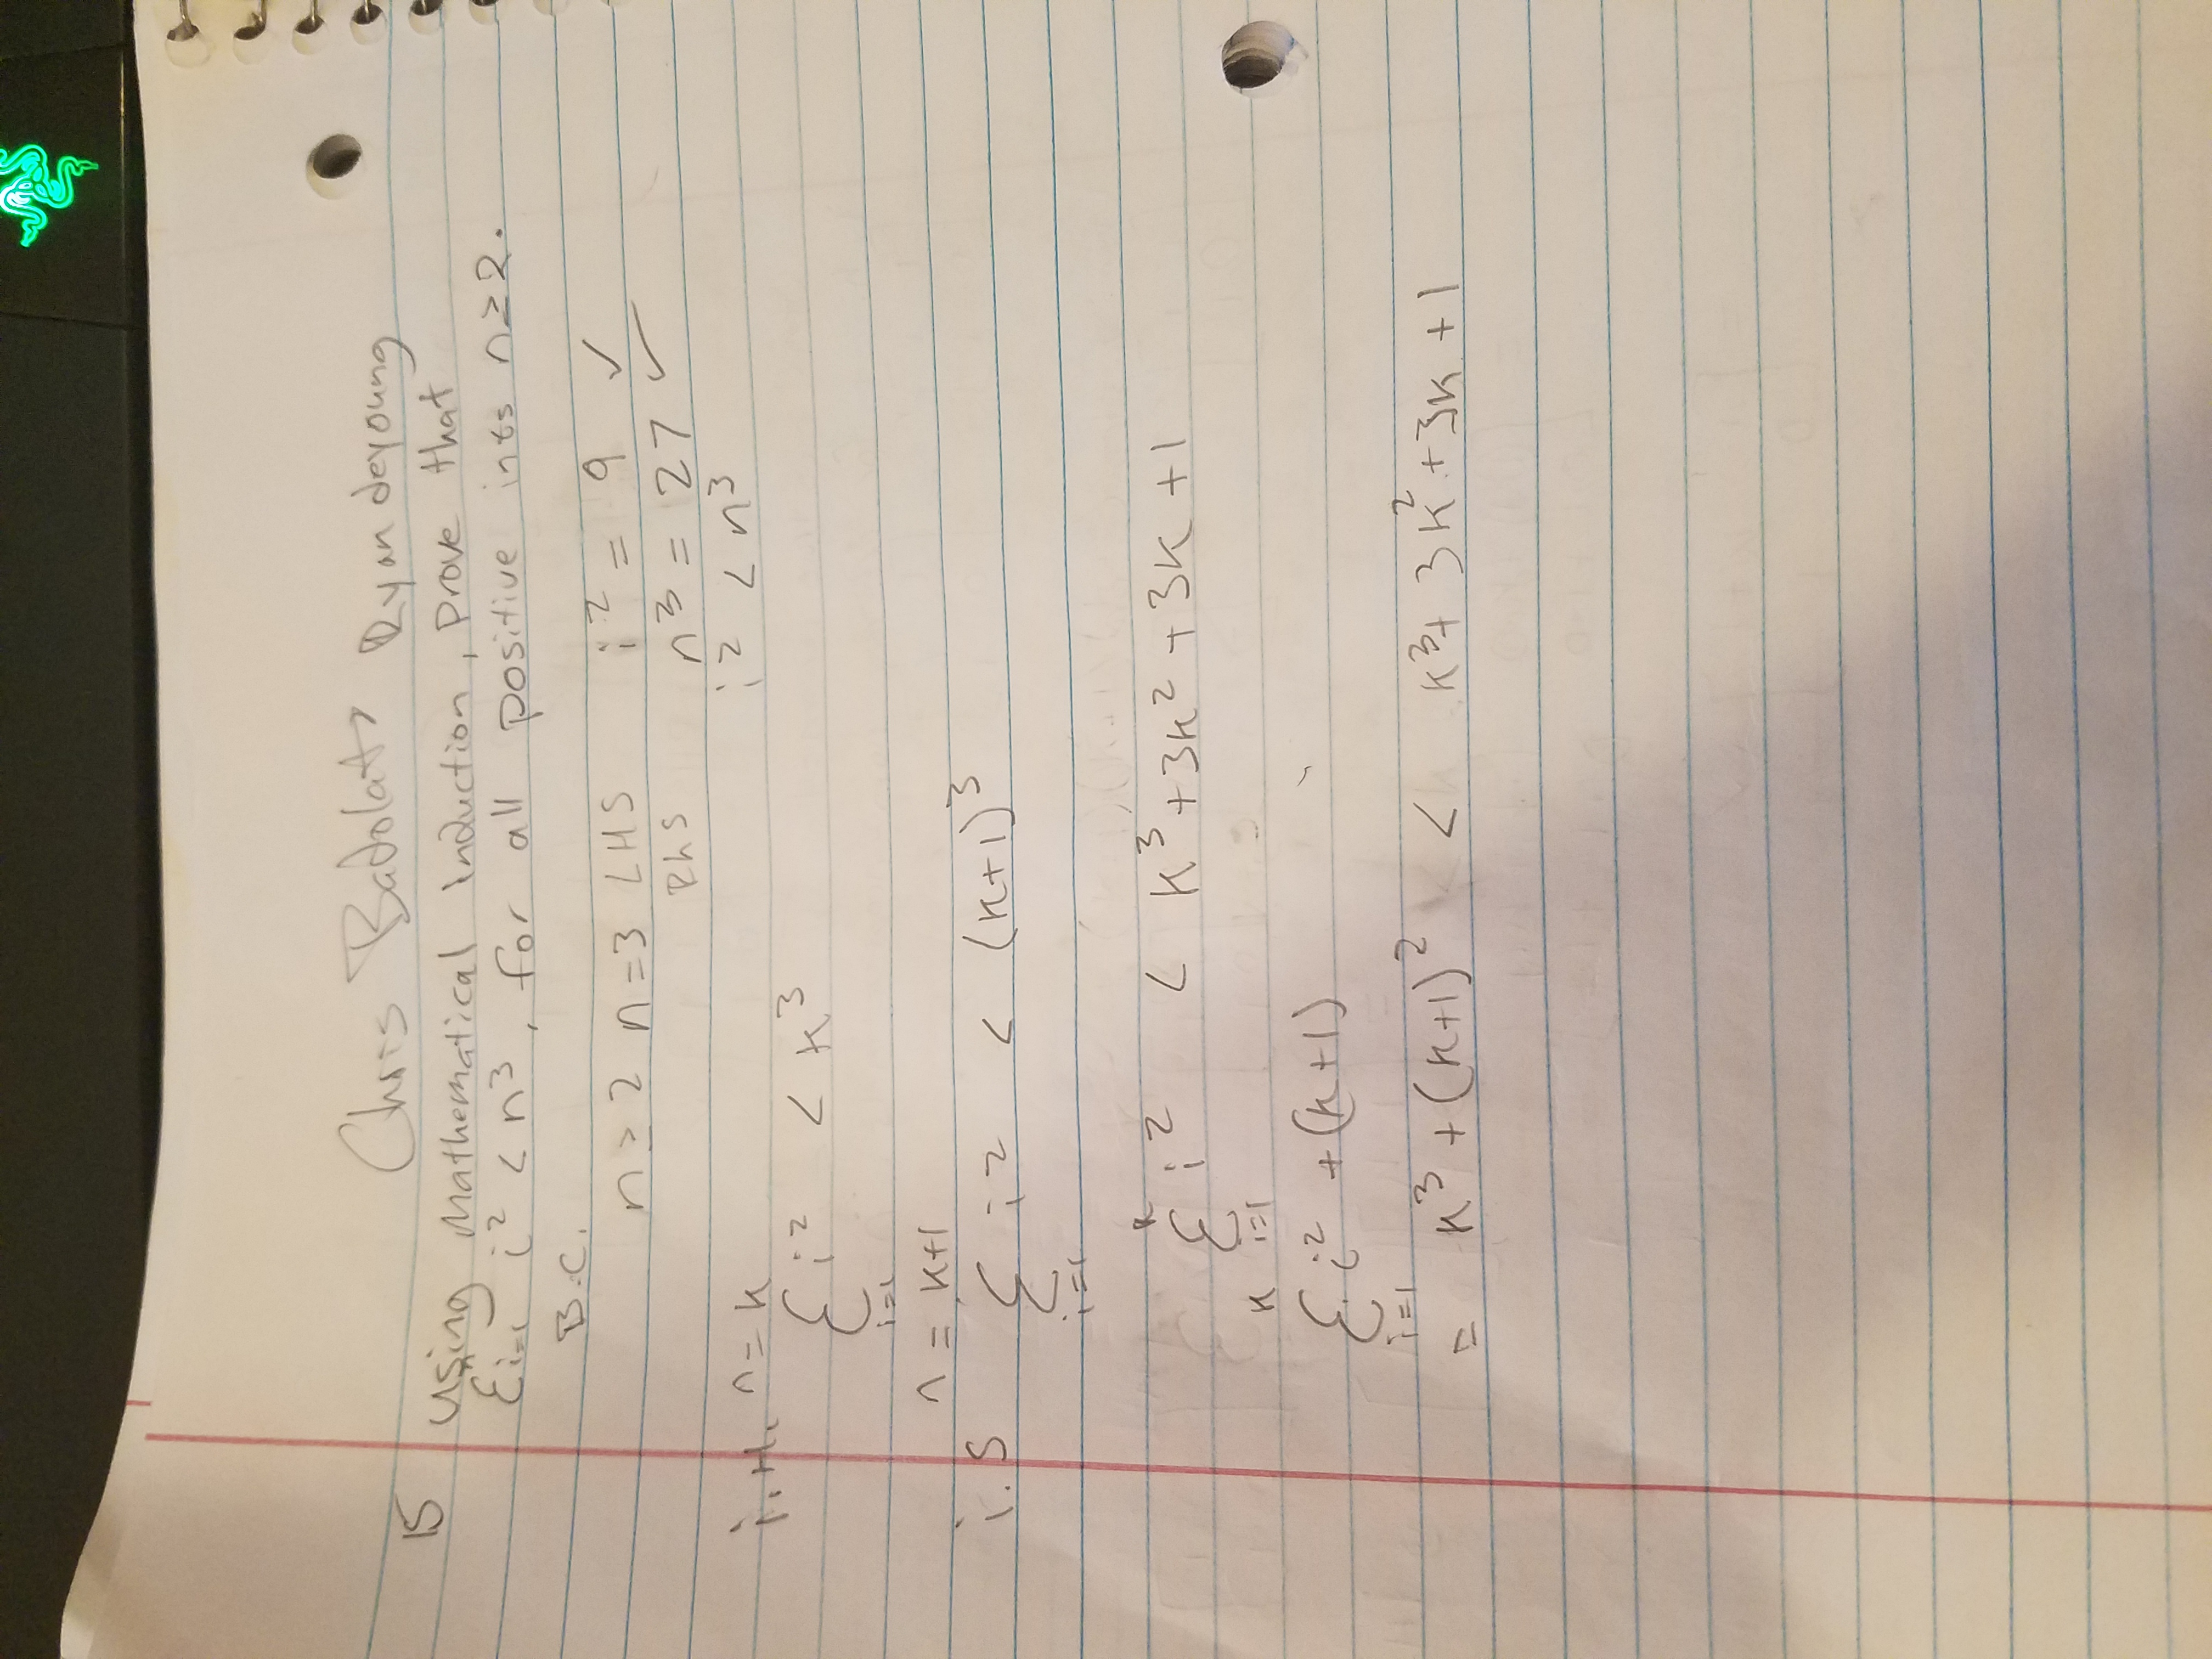 Chris Badolato Ryan deyoung
15 using Mathematical Induction, Prove that
Σⁿi=1 i² < n³, for all positive ints n≥2.
B.C.
n ≥ 2 n=3 LHS i² = 9 ✓
RhS n³ = 27 ✓
i² < n³
i.H. n = k
Σ i² < k³
i=1
n = k+1
i.S Σ i² < (k+1)³
i=1
k
Σ i² < k³+3k²+3k+1
i=1
k
Σ i² +(k+1)
i=1
= k³+(k+1)² < k³+3k²+3k+1